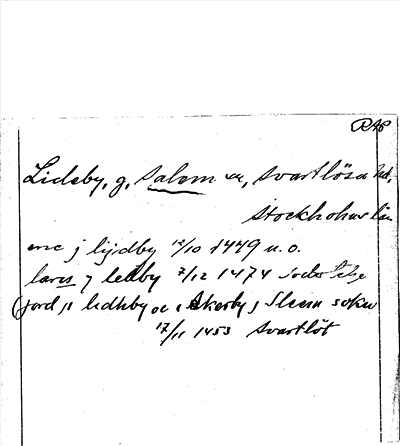 RAp
Lideby, g, Salem sn, Svartlösa hd,
Stockholms län.
enc j lijdby 12/10 1449 u.o.
lares j ledby 7/12 1474 Södertelje
(jord j ledhby oc i Akerby j Sleem sokn
17/11 1453 Svartlöt